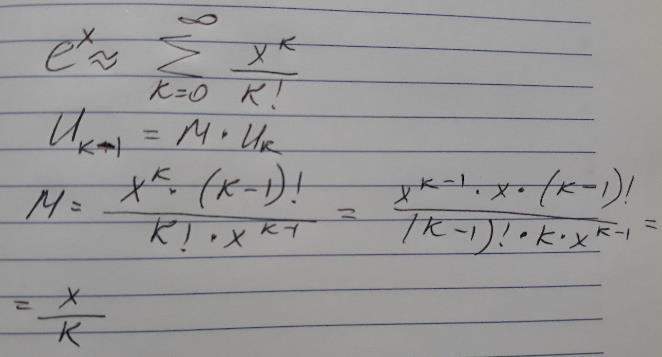 e^x ≈ ∑_{K=0}^{∞} x^K / K!
U_{K-1} = M · U_K
M = x^K · (K-1)! / K! · x^{K-1} = x^{K-1} · x · (K-1)! / (K-1)! · K · x^{K-1} =
= x / K